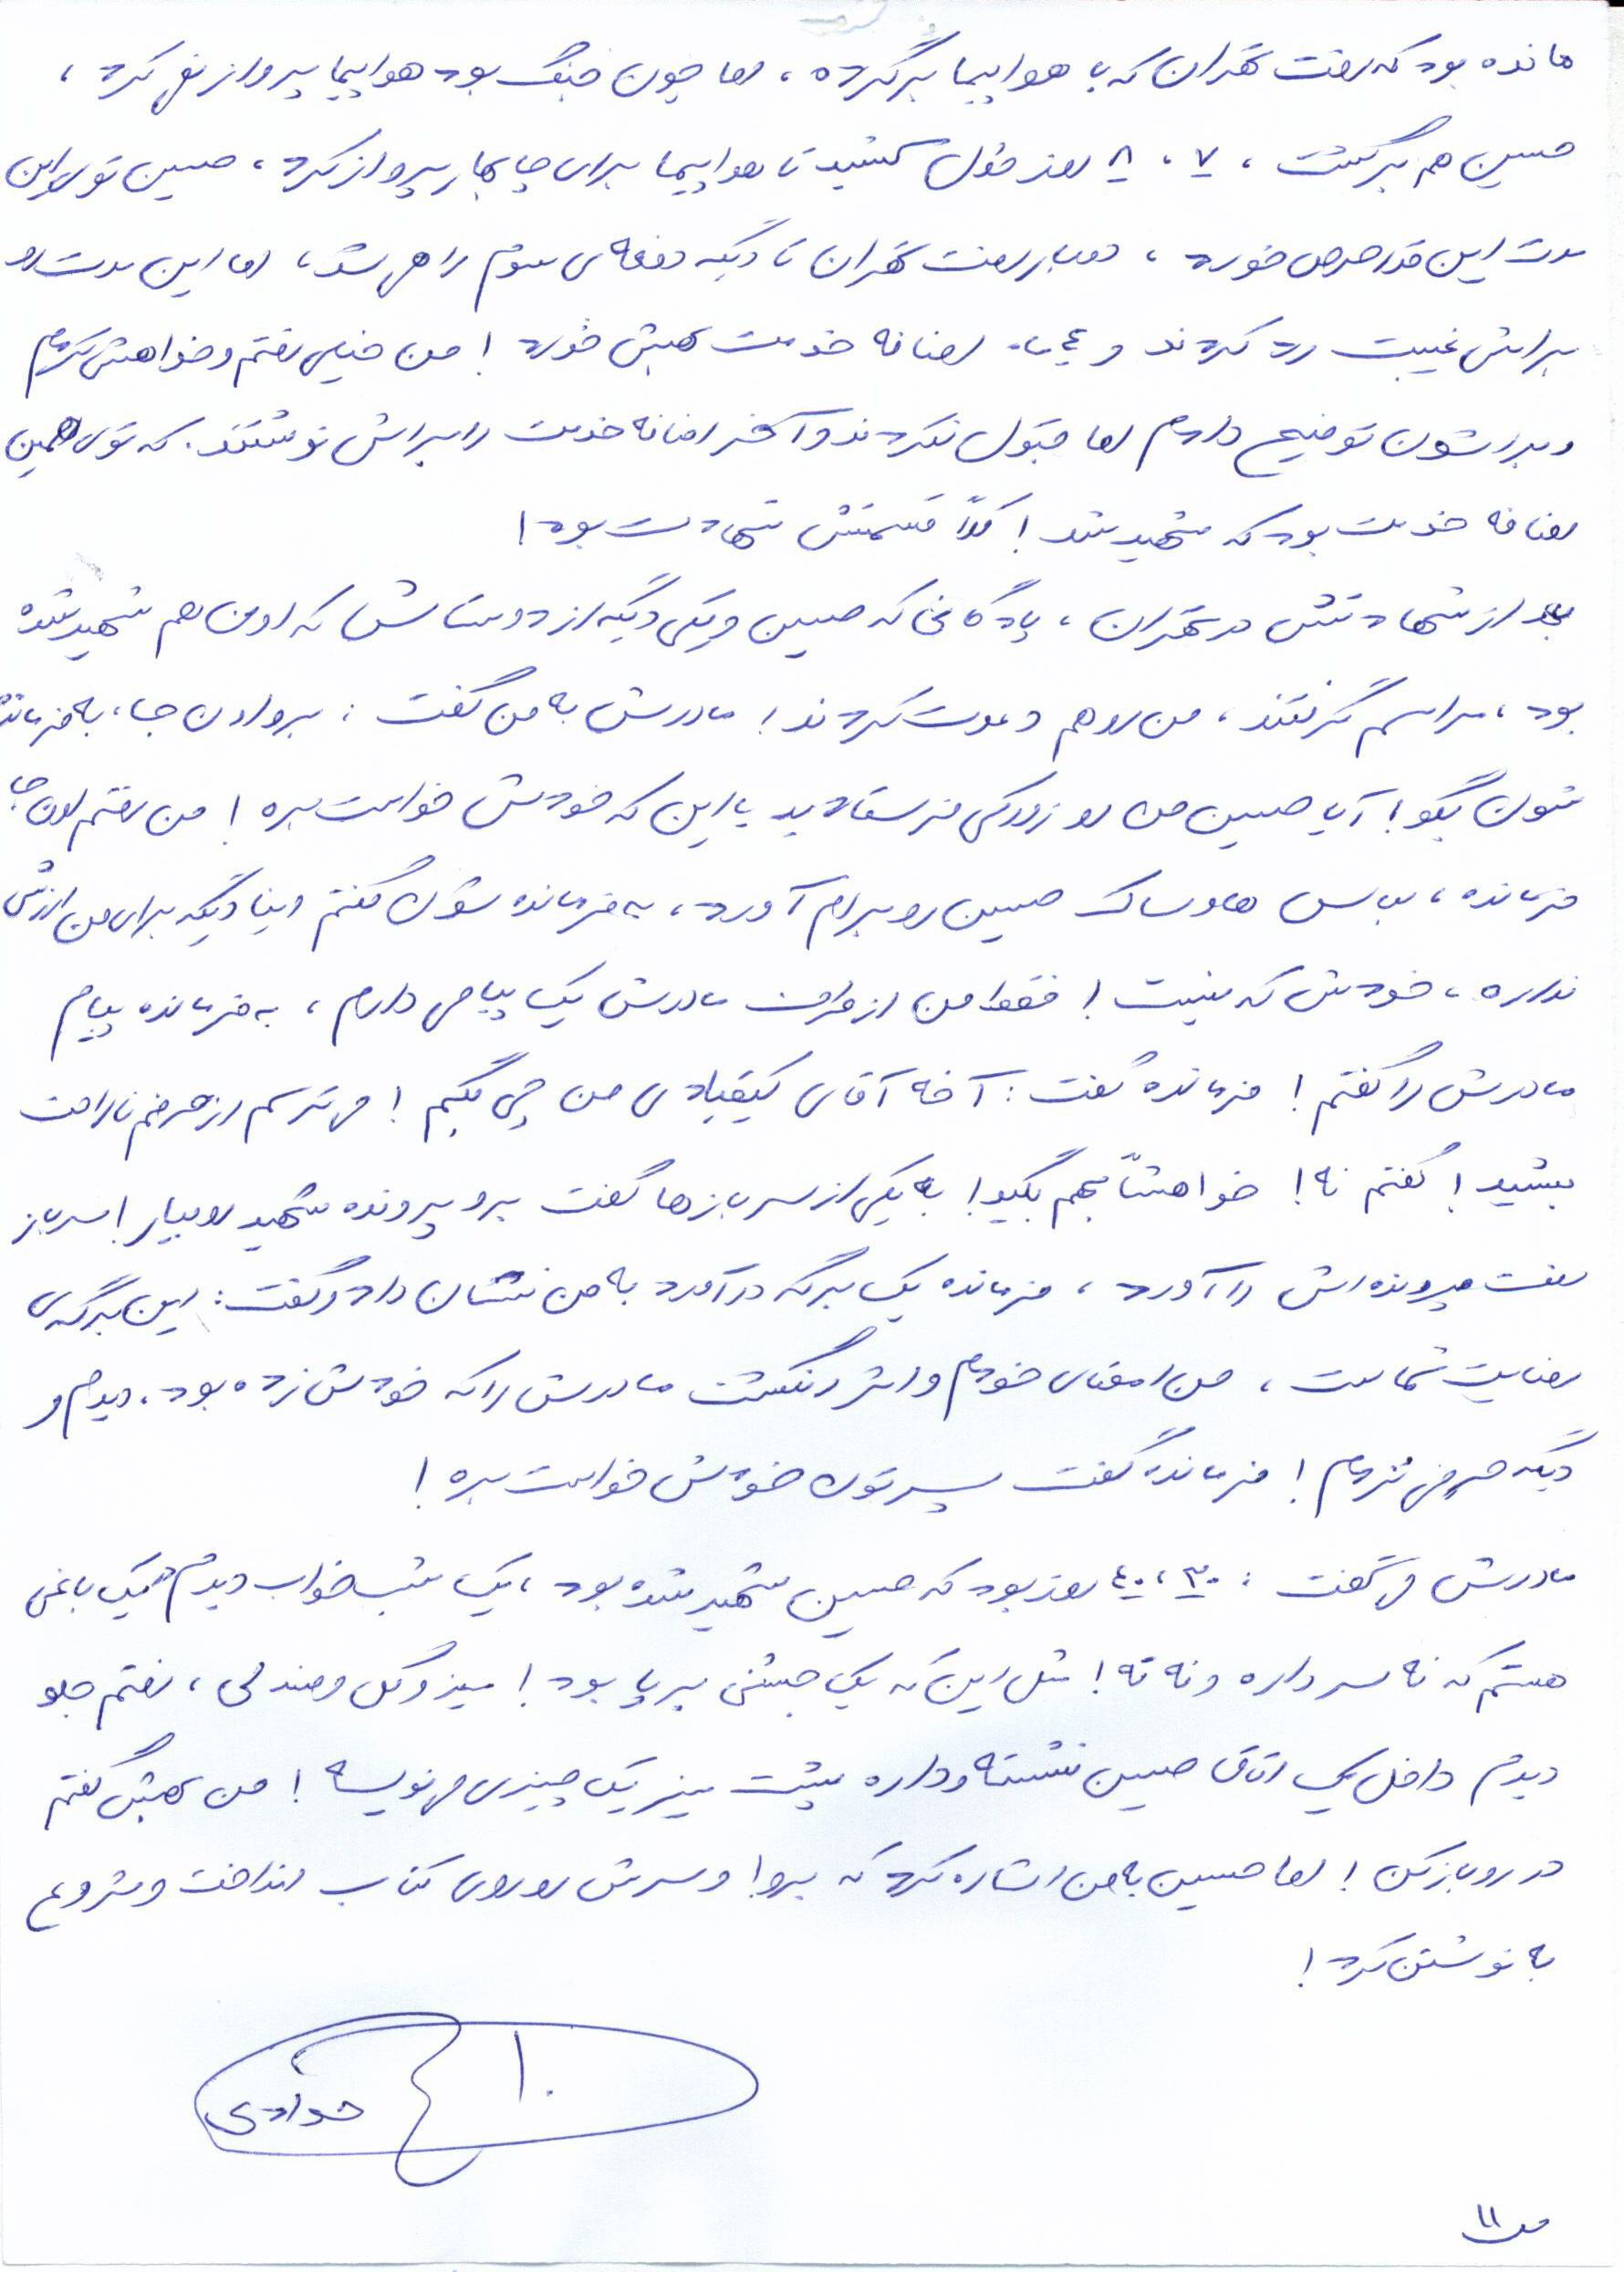 مانده بود که رفت تهران که با هواپیما برگرده، اما چون جنگ بود هواپیما پرواز نمی‌کرد،
حسین هم برگشت، ۷، ۸ روز طول کشید تا هواپیما برای چابهار پرواز کرد، حسین توی این
مدت این قدر حرص خورد، دوبار رفت تهران تا دیگه دفعه‌ی سوم راهی شد، اما این مدت رو
برایش غیبت رد کردند و ٤ ماه اضافه خدمت بهش خورد! من خیلی رفتم و خواهش کردم
و براشون توضیح دادم اما قبول نکردند و آخر اضافه خدمت را برایش نوشتند. که توی همین
اضافه خدمت بود که شهید شد! کلاً قسمتش شهادت بود!
بعد از شهادتش در تهران، پادگانی که حسین و یکی دیگه از دوستاش که اون هم شهید شده
بود، مراسم گرفتند، من رو هم دعوت کردند! مادرش به من گفت: برو اون جا، به فرمانده
شون بگو! آیا حسین من رو زورکی فرستادید یا این که خودش خواست بره! من رفتم اون جا،
فرمانده، لباس ها و ساک حسین رو برام آورد، به فرمانده شون گفتم اینا دیگه برای من ارزشی
نداره، خودش که نیست! فقط من از طرف مادرش یک پیامی دارم، به فرمانده پیام
مادرش را گفتم! فرمانده گفت: آخه آقای کیقبادی من چی بگم! می‌ترسم از حرفم ناراحت
بشید! گفتم نه! خواهشاً بهم بگید! به یکی از سربازها گفت برو پرونده شهید رو بیار! سرباز
رفت پرونده‌اش را آورد، فرمانده یک برگه درآورد به من نشان داد و گفت: این برگه‌ی
رضایت شماست، من امضای خودم و اثر انگشت مادرش را که خودش زده بود، دیدم و
دیگه حرفی نزدم! فرمانده گفت پسرتون خودش خواست بره!
مادرش می‌گفت: ۳۰، ٤۰ روز بود که حسین شهید شده بود، یک شب خواب دیدم یک باغی
هستم که نه سر داره و نه ته! مثل این که یک جشنی برپا بود! میز و گل و صندلی، رفتم جلو
دیدم داخل یک اتاق حسین نشسته و داره پشت میز یک چیزی می‌نویسه! من بهش گفتم
در رو باز کن! اما حسین به من اشاره کرد که برو! و سرش رو روی کتاب انداخت و شروع
به نوشتن کرد!
ص ۱۱